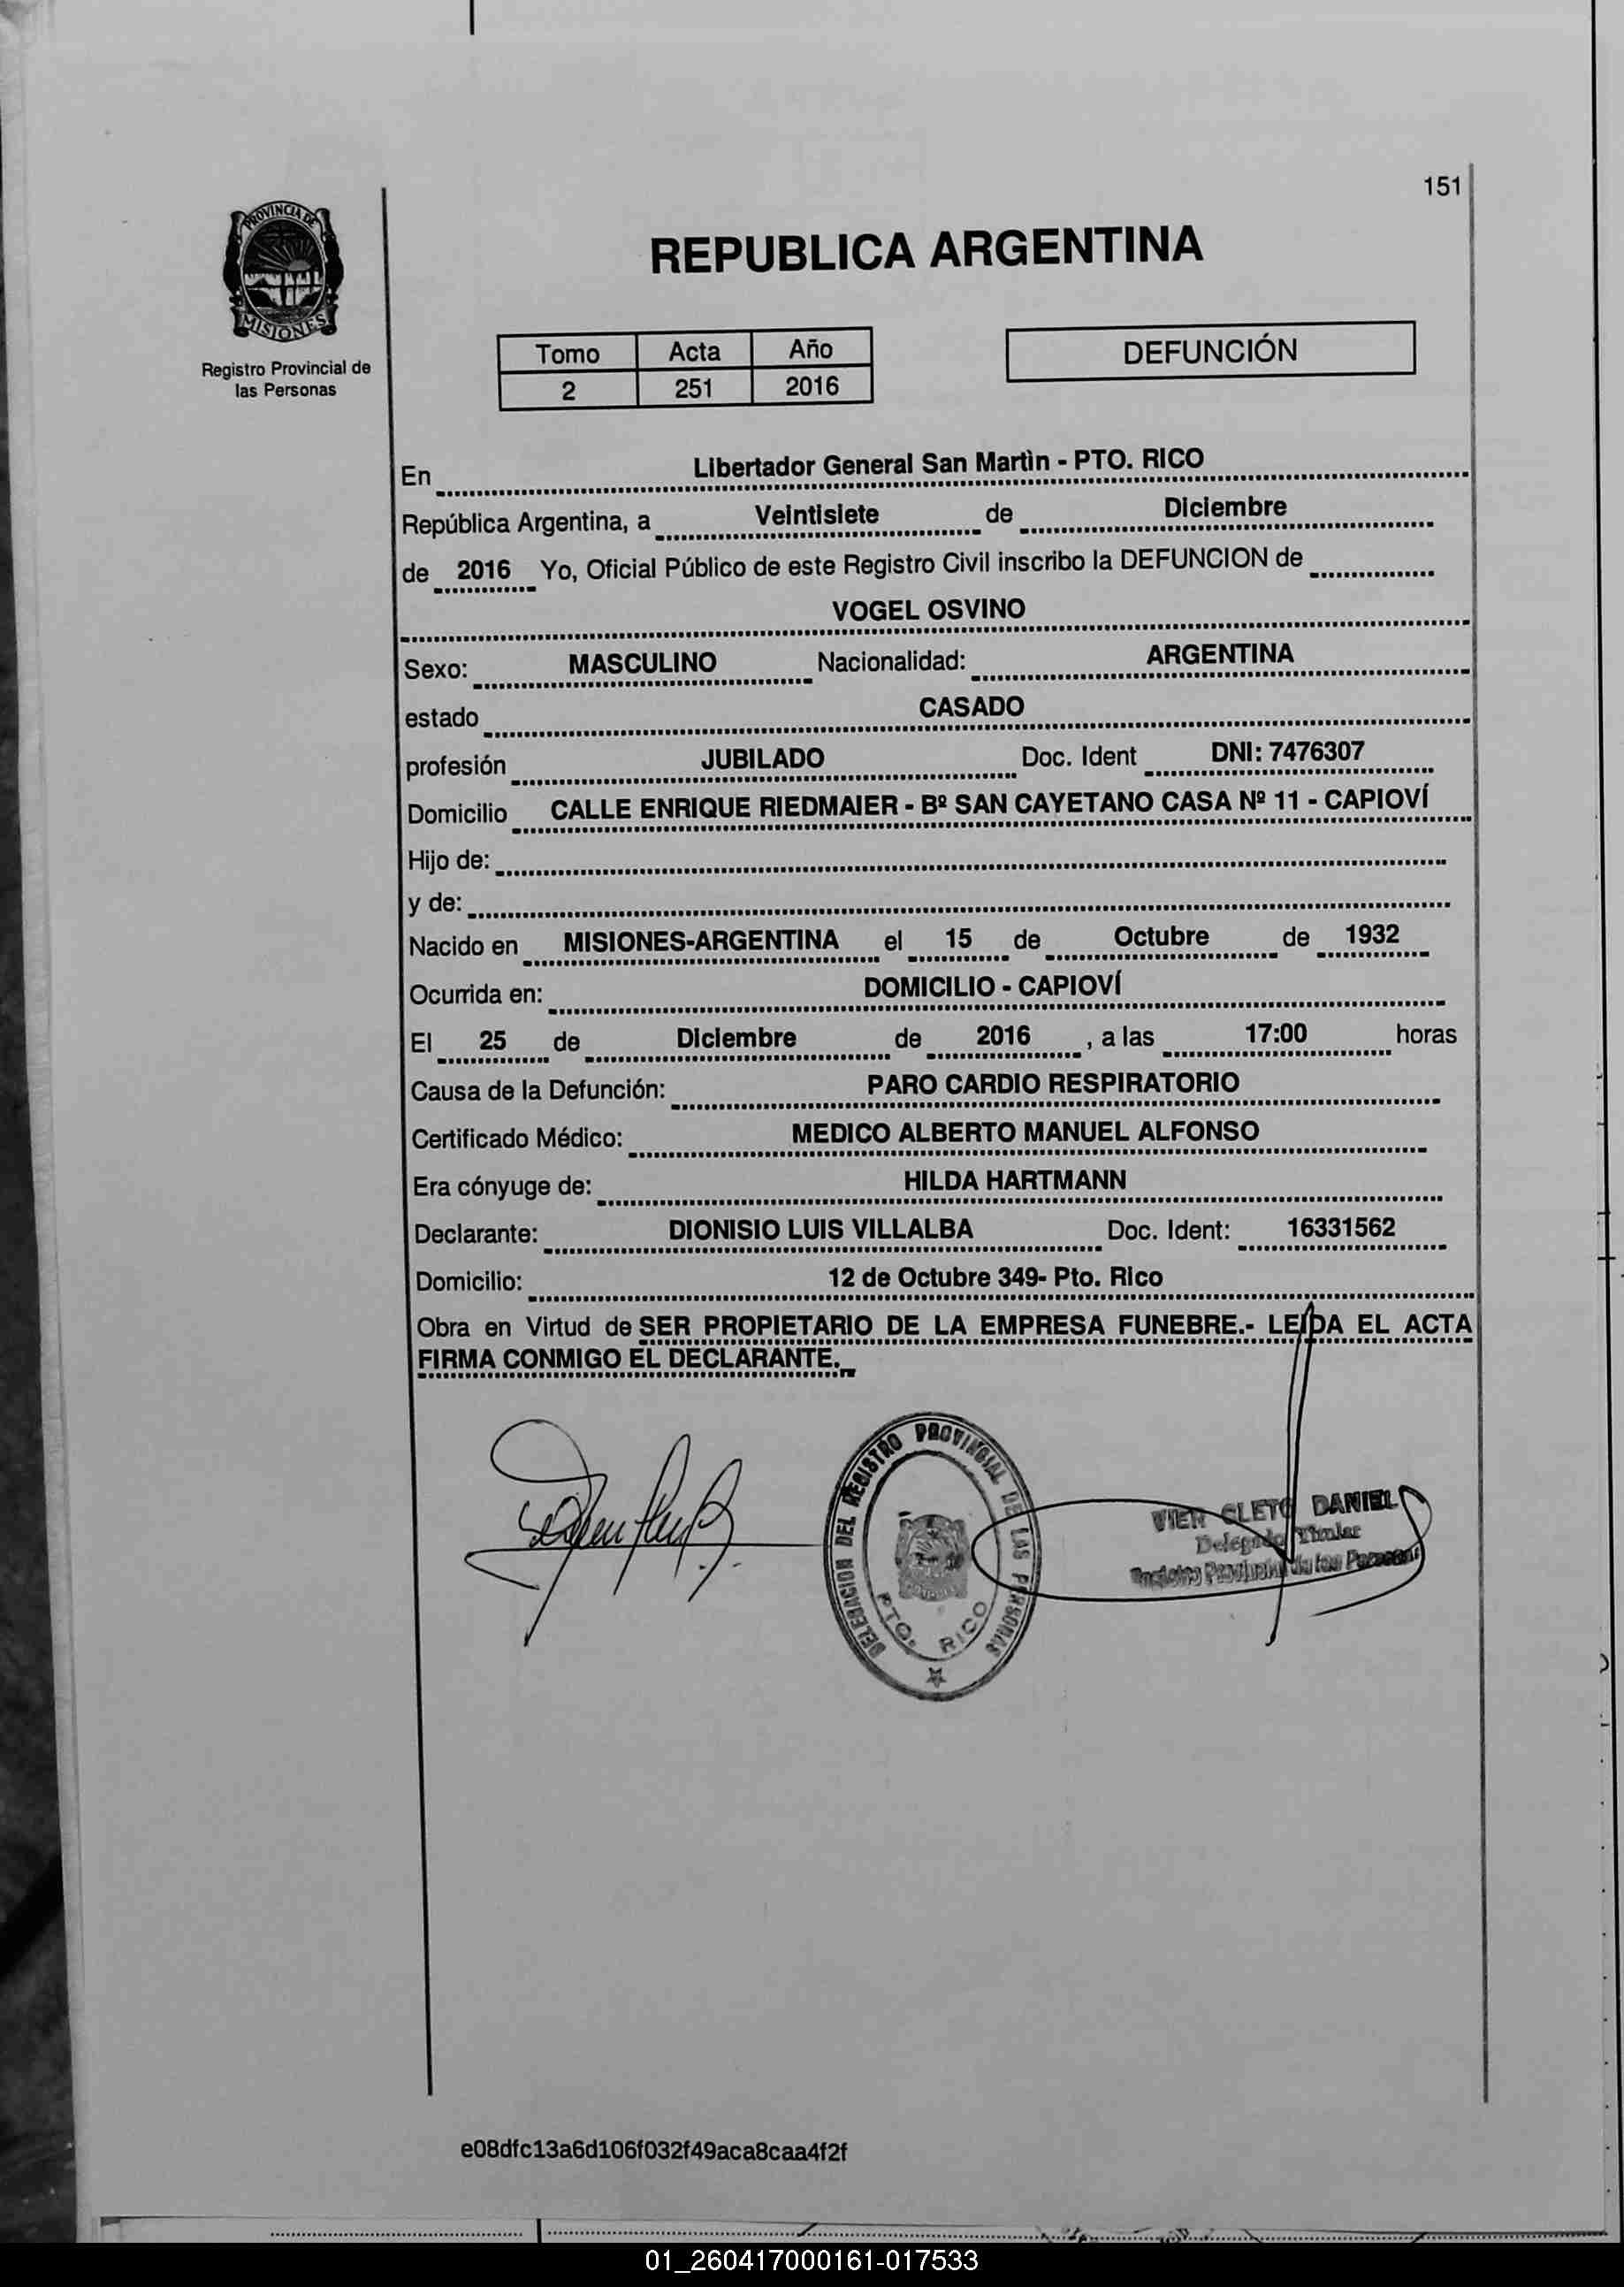 151
PROVINCIA DE
MISIONES
Registro Provincial de
las Personas
REPUBLICA ARGENTINA
Tomo Acta Año
2 251 2016
DEFUNCIÓN
En Libertador General San Martìn - PTO. RICO
República Argentina, a Veintisiete de Diciembre
de 2016 Yo, Oficial Público de este Registro Civil inscribo la DEFUNCION de
VOGEL OSVINO
Sexo: MASCULINO Nacionalidad: ARGENTINA
estado CASADO
profesión JUBILADO Doc. Ident DNI: 7476307
Domicilio CALLE ENRIQUE RIEDMAIER - Bº SAN CAYETANO CASA Nº 11 - CAPIOVÍ
Hijo de:
y de:
Nacido en MISIONES-ARGENTINA el 15 de Octubre de 1932
Ocurrida en: DOMICILIO - CAPIOVÍ
El 25 de Diciembre de 2016 , a las 17:00 horas
Causa de la Defunción: PARO CARDIO RESPIRATORIO
Certificado Médico: MEDICO ALBERTO MANUEL ALFONSO
Era cónyuge de: HILDA HARTMANN
Declarante: DIONISIO LUIS VILLALBA Doc. Ident: 16331562
Domicilio: 12 de Octubre 349- Pto. Rico
Obra en Virtud de SER PROPIETARIO DE LA EMPRESA FUNEBRE.- LEIDA EL ACTA
FIRMA CONMIGO EL DECLARANTE.
DELEGACION DEL REGISTRO PROVINCIAL DE LAS PERSONAS
PTO. RICO
VIER CLETO DANIEL
Delegado Titular
Registro Provincial de las Personas
e08dfc13a6d106f032f49aca8caa4f2f
01_260417000161-017533